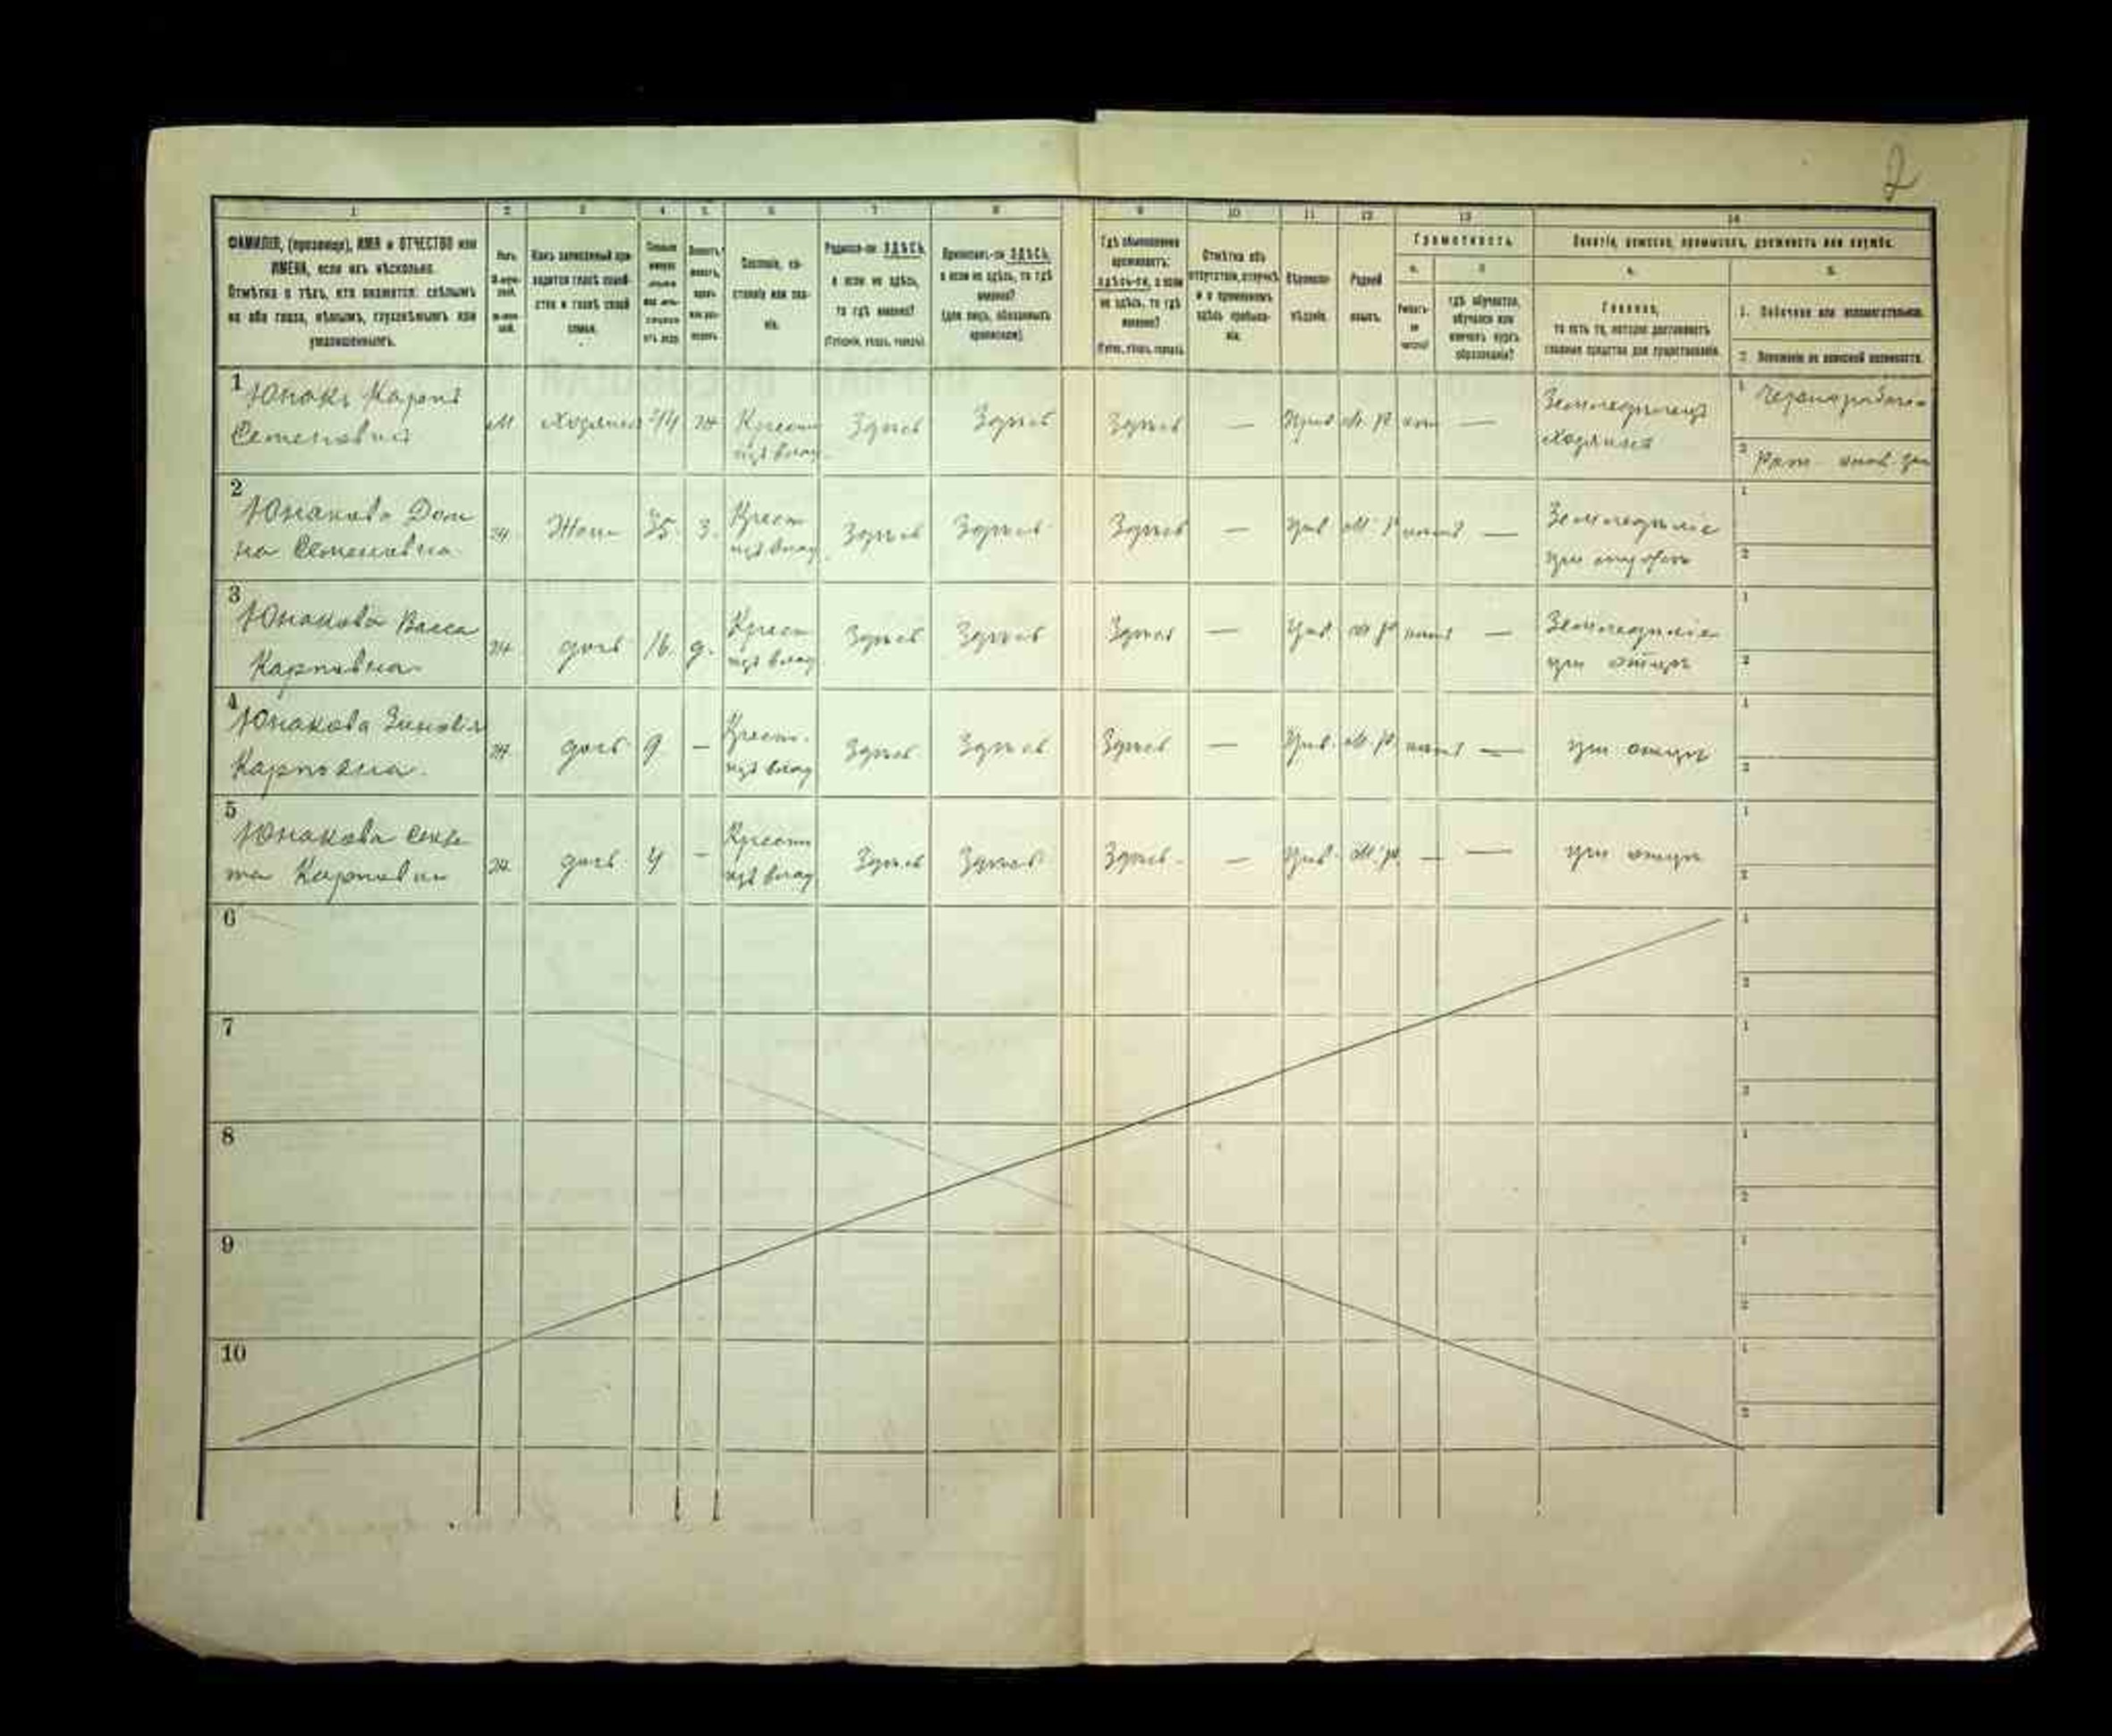 2
1 2 3 4 5 6 7 8 9 10 11 12 13 14
ФАМИЛІЯ, (прозвище), ИМЯ и ОТЧЕСТВО или
ИМЕНА, если ихъ нѣсколько.
Отмѣтка о тѣхъ, кто окажется: слѣпымъ
на оба глаза, нѣмымъ, глухонѣмымъ или
умалишеннымъ.
Какъ записанный при-
ходится главѣ хозяй-
ства и главѣ своей
семьи.
Сословіе, со-
стояніе или зва-
ніе.
Родился-ли ЗДѢСЬ,
а если не здѣсь,
то гдѣ именно?
(Губернія, уѣздъ, городъ).
Приписанъ-ли ЗДѢСЬ,
а если не здѣсь, то гдѣ
именно?
(для лицъ, обязанныхъ
припискою)
Гдѣ обыкновенно
проживаетъ:
здѣсь-ли, а если
не здѣсь, то гдѣ
именно?
(Губер., уѣздъ, городъ).
Отмѣтка объ
отсутствіи, отлучкѣ
и о временномъ
здѣсь пребыва-
ніи.
Вѣроиспо-
вѣданіе.
Родной
языкъ.
Грамотность.
а. б.
гдѣ обучается,
обучался или
кончилъ курсъ
образованія?
Занятіе, ремесло, промыселъ, должность или служба.
а. б.
Главное,
то есть то, которое доставляетъ
главныя средства для существованія.
1. Побочное или вспомогательное.
2. Положеніе по воинской повинности.
1 Юнакъ Карпъ
Семеновичъ
М Хозяинъ 44 Ж Крестьян
изъ влад. Здѣсь Здѣсь Здѣсь — Прав М. Р. — Земледѣлецъ
хозяинъ 1
2
2 Юнакова Дом
на Семеновна
Ж. Жена 35. З. Крест
изъ влад Здѣсь Здѣсь Здѣсь — Прав М. Р — Земледѣліе
при мужѣ 1
2
3 Юнакова Васса
Карповна
Ж. дочь 16. д. Крест
изъ влад Здѣсь Здѣсь Здѣсь — Прав. М Р — Земледѣліе
при отцѣ 1
2
4 Юнакова Зиновія
Карповна.
Ж. дочь 9. — Крест.
изъ влад Здѣсь Здѣсь Здѣсь — Прав. М. Р. — при отцѣ 1
2
5 Юнакова
Ж. дочь 4 — Крестьян
изъ влад. Здѣсь Здѣсь Здѣсь. — Прав. М. Р. — — при отцѣ 1
2
6 1
2
7 1
2
8 1
2
9 1
2
10 1
2